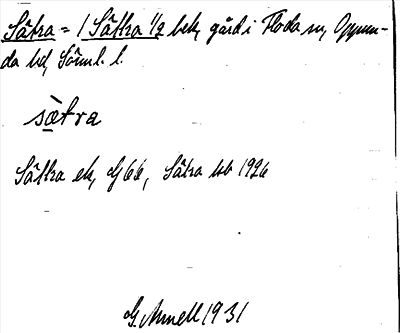 Sätra = / Sättra 1/2 bek, gård i Floda sn, Oppun-
da hd, Sörml. l.
sætra
Sättra ek, Gj 66, Sätra tsb 1926
G. Annell 1931